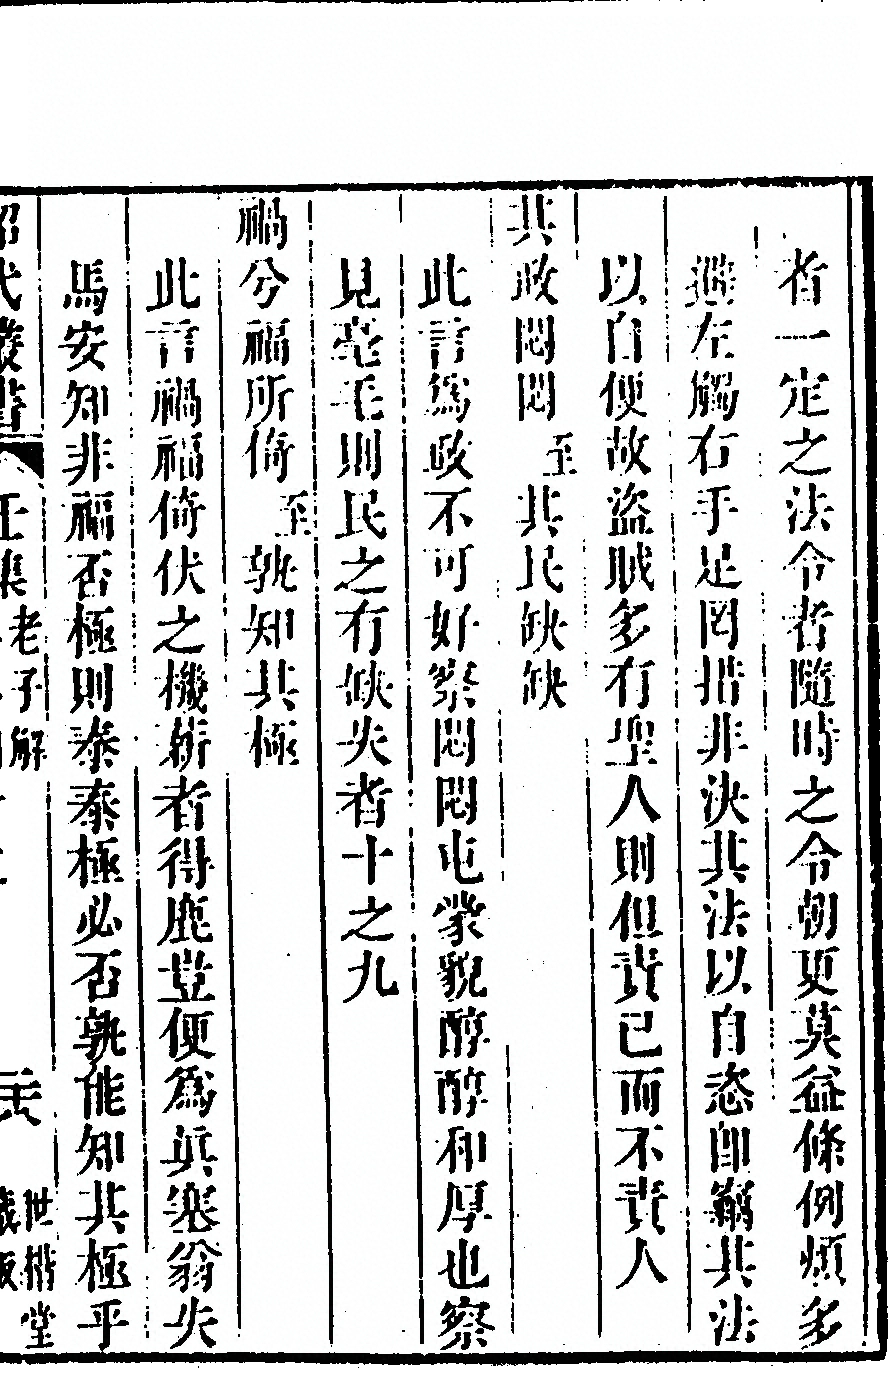 者一定之法令者隨時之令朝更莫益條例煩多
避左觸右手足罔措非決其法以自恣卽竊其法
以自便故盜賊多有聖人則但責已而不責人
其政悶悶至其民缺缺
此言爲政不可好察悶悶屯蒙貌醇醇和厚也察
見毫毛則民之有缺失者十之九
禍兮福所倚至孰知其極
此言禍福倚伏之機薪者得鹿豈便爲眞塞翁失
馬安知非福否極則泰泰極必否孰能知其極乎
昭代叢書 壬集 老子解 世楷堂藏板